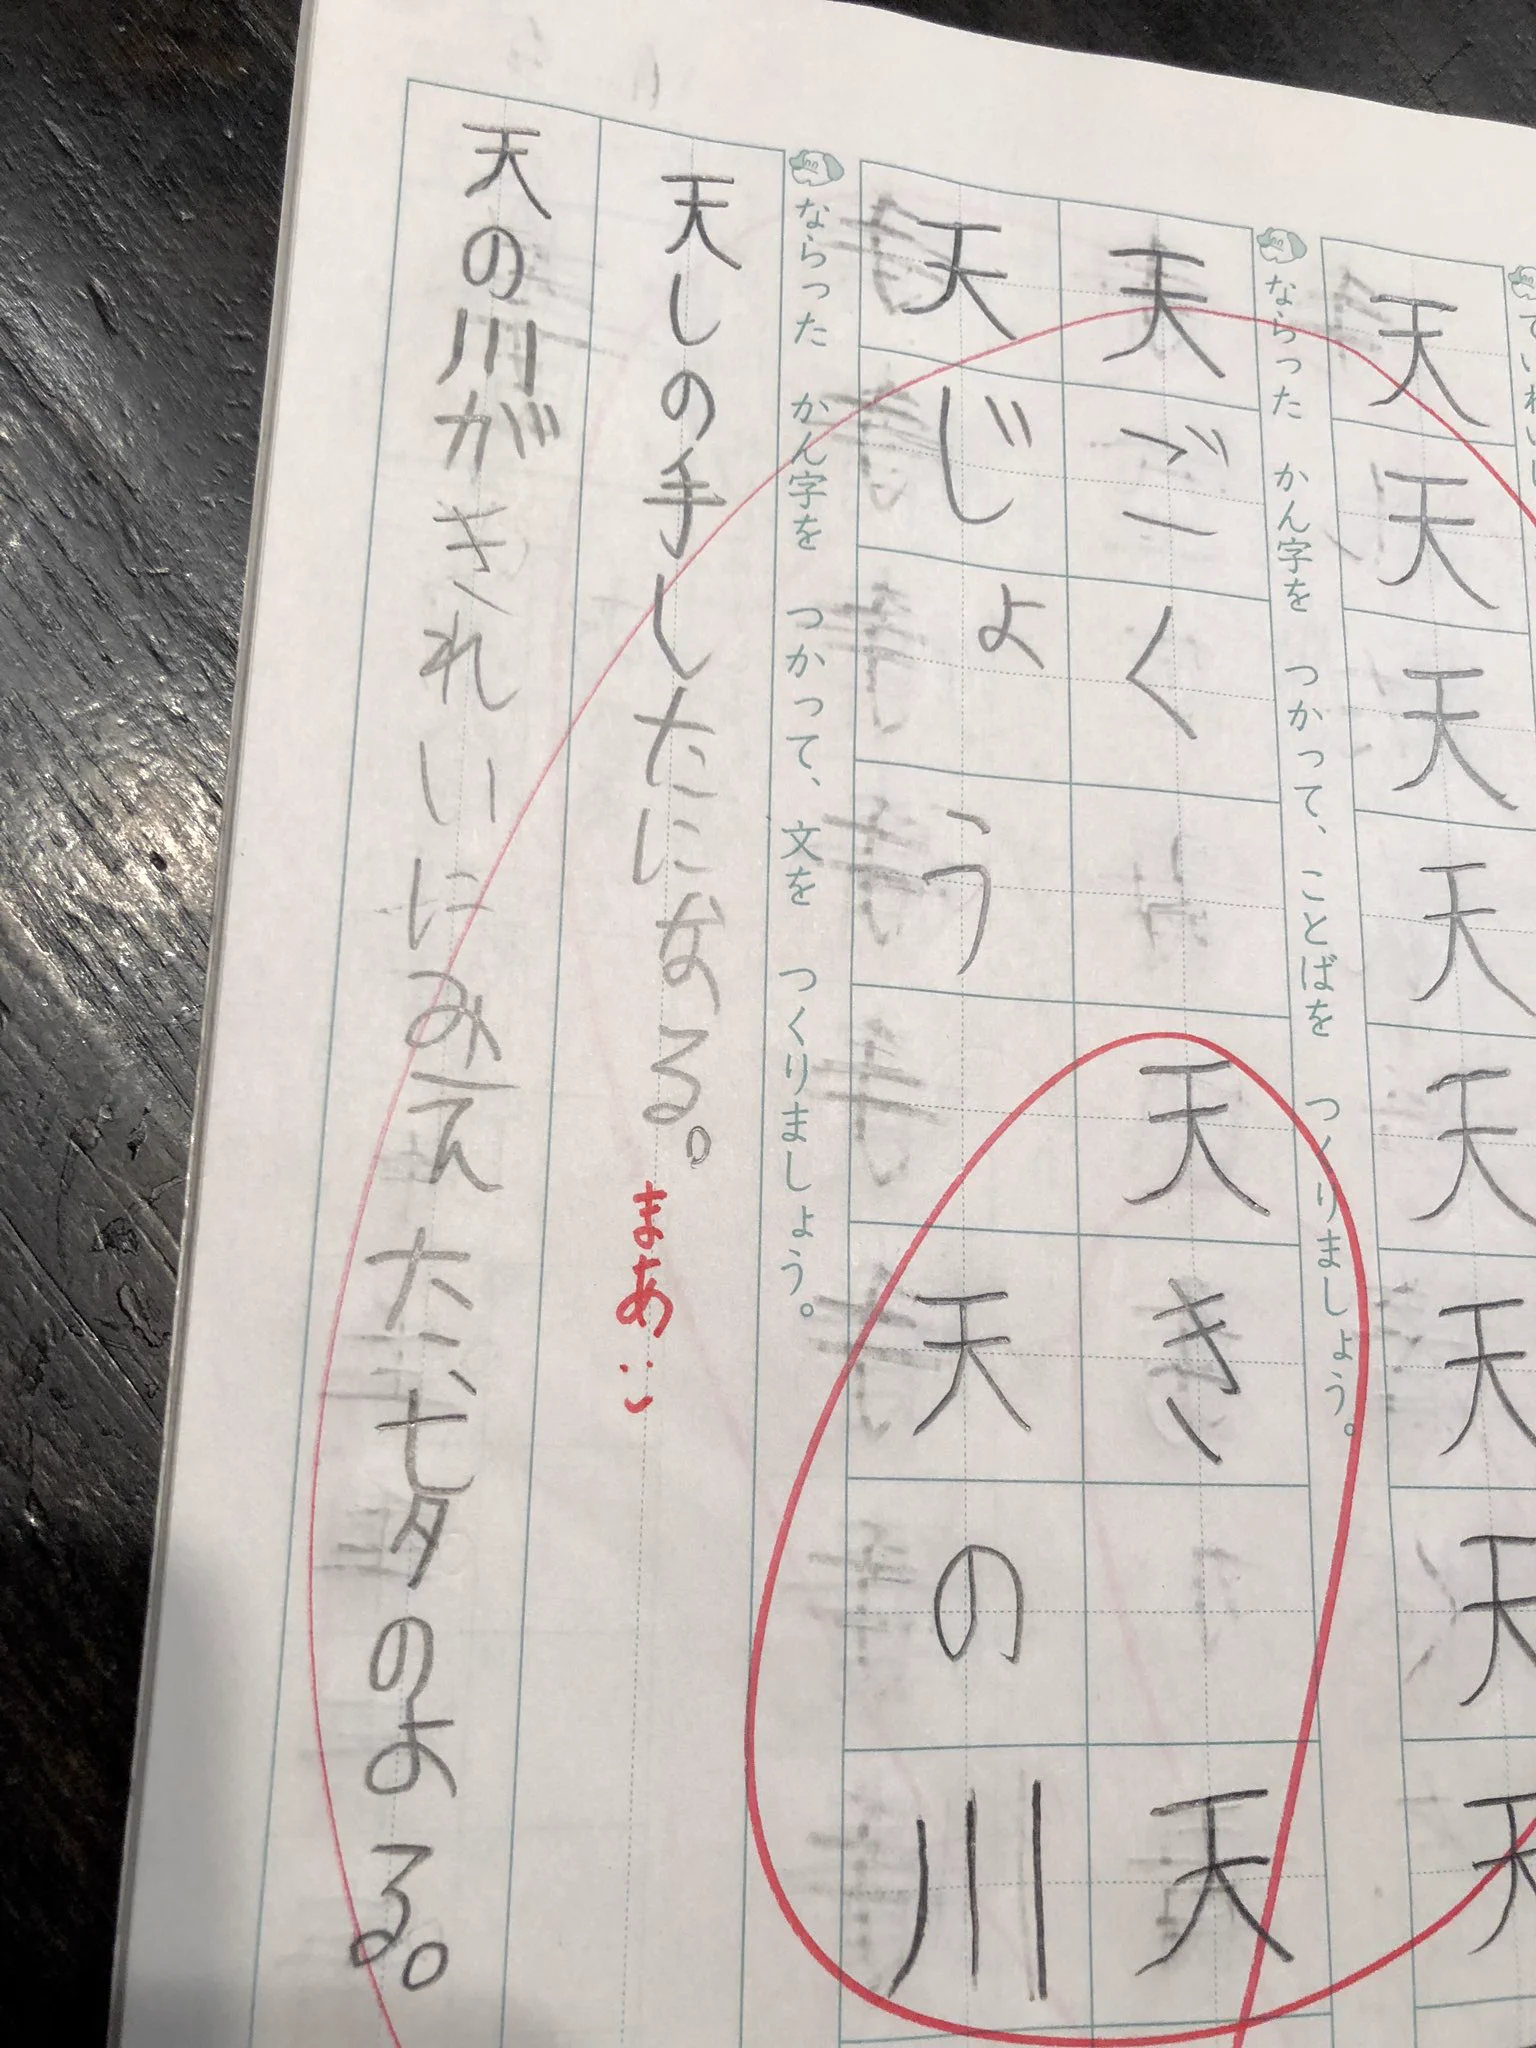 ていねいに
天天天天天天天天
ならった かん字を つかって、ことばを つくりましょう。
天ごく 天き 天
天じょう 天の川
ならった かん字を つかって、文を つくりましょう。
天しの手したになる。まあ
天の川がきれいにみえた、七夕のよる。